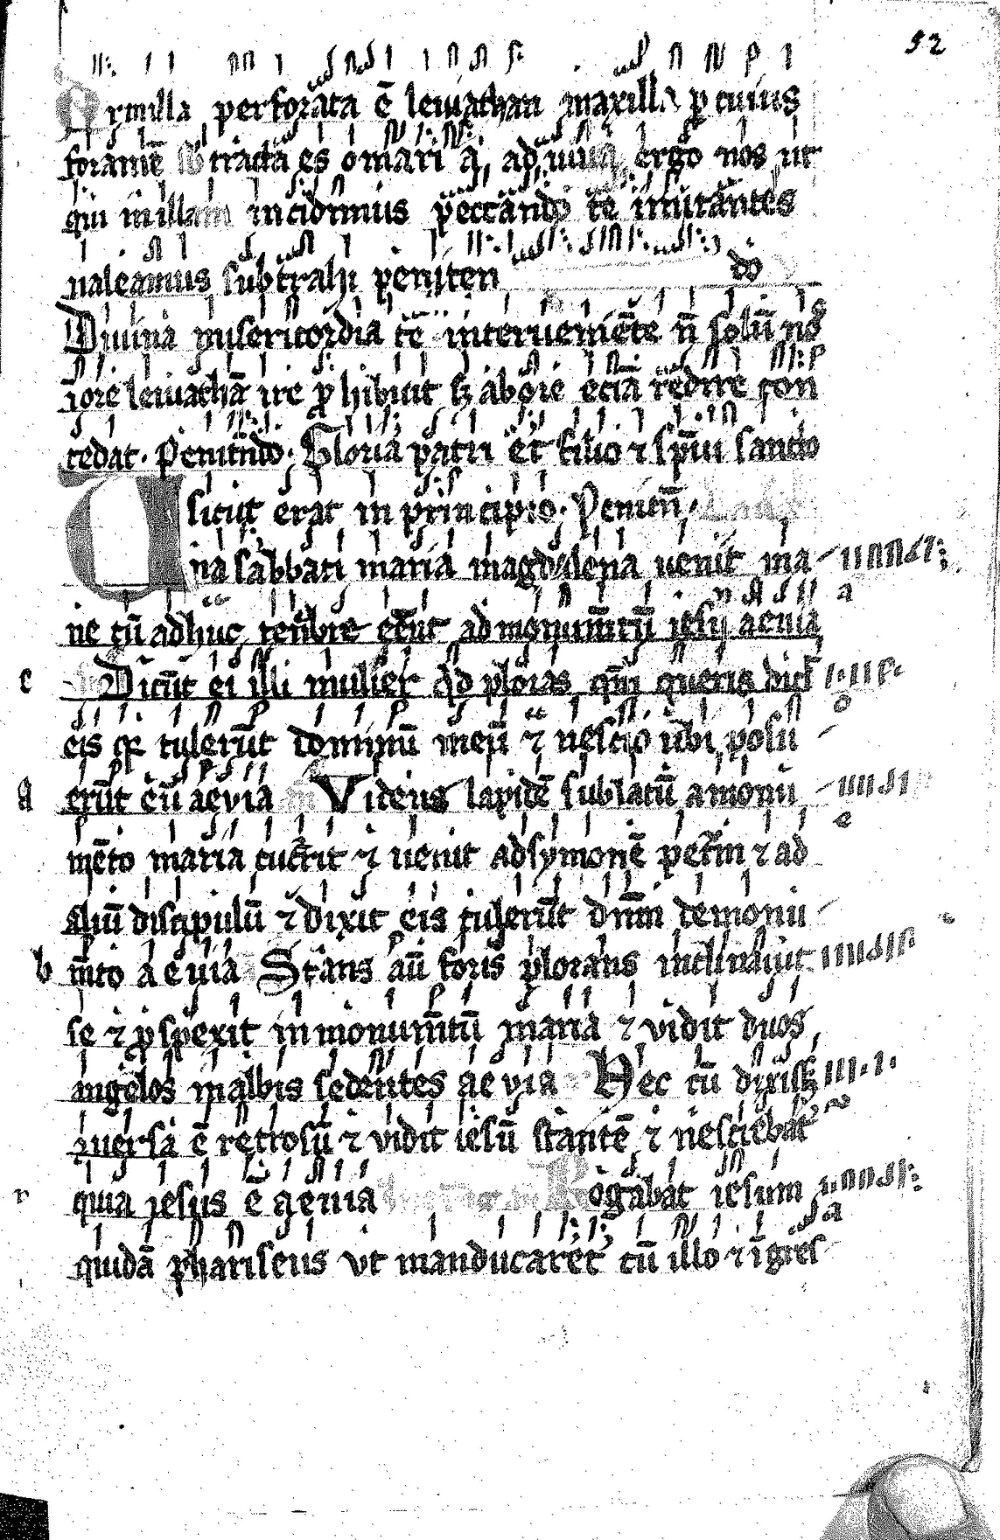 52
Armilla perforata ē leuiathan maxilla p cuius
foramē tracta es o maria adiuua ergo nos ut
qui in illam incidimus peccando te imitantes
ualeamus subtrahi peniten do
Diuina misericordia te interueniēte n̄ solū nō
ī ore leuiathā ire phibuit sʒ ab ore eciā redire con
cedat. Penitn̄do. Gloria patri et filio ⁊ sp̄ui sancto
sicut erat in principio. Penitn̄.
Una sabbati maria magdalena uenit ma
ne cū adhuc tenebre eēnt ad monumn̄tū iesu aeuia a
e Dicūt ei illi mulier qd ploras quē queris dicit
eis q tulerūt dominū meū ⁊ nescio ubi posu o
a erūt eū aeuia Videns lapidē sublatū a monu
mēto maria cucrrit ⁊ uenit ad symonē petrm ⁊ ad e
aliū discipulū ⁊ dixit eis tulerūt dn̄m de monu
b mn̄to aeuia Stans aū foris plorans inclinauit
se ⁊ pspexit in monumn̄tū maria ⁊ vidit duos
angelos in albis sedentes aeuia Hec cū dixisʒ
quersa ē retrosū ⁊ vidit iesū stantē ⁊ nesciebat
r quia iesus ē aeuia Rogabat iesum
quidā phariseus vt manducaret cū illo ⁊ īgres a